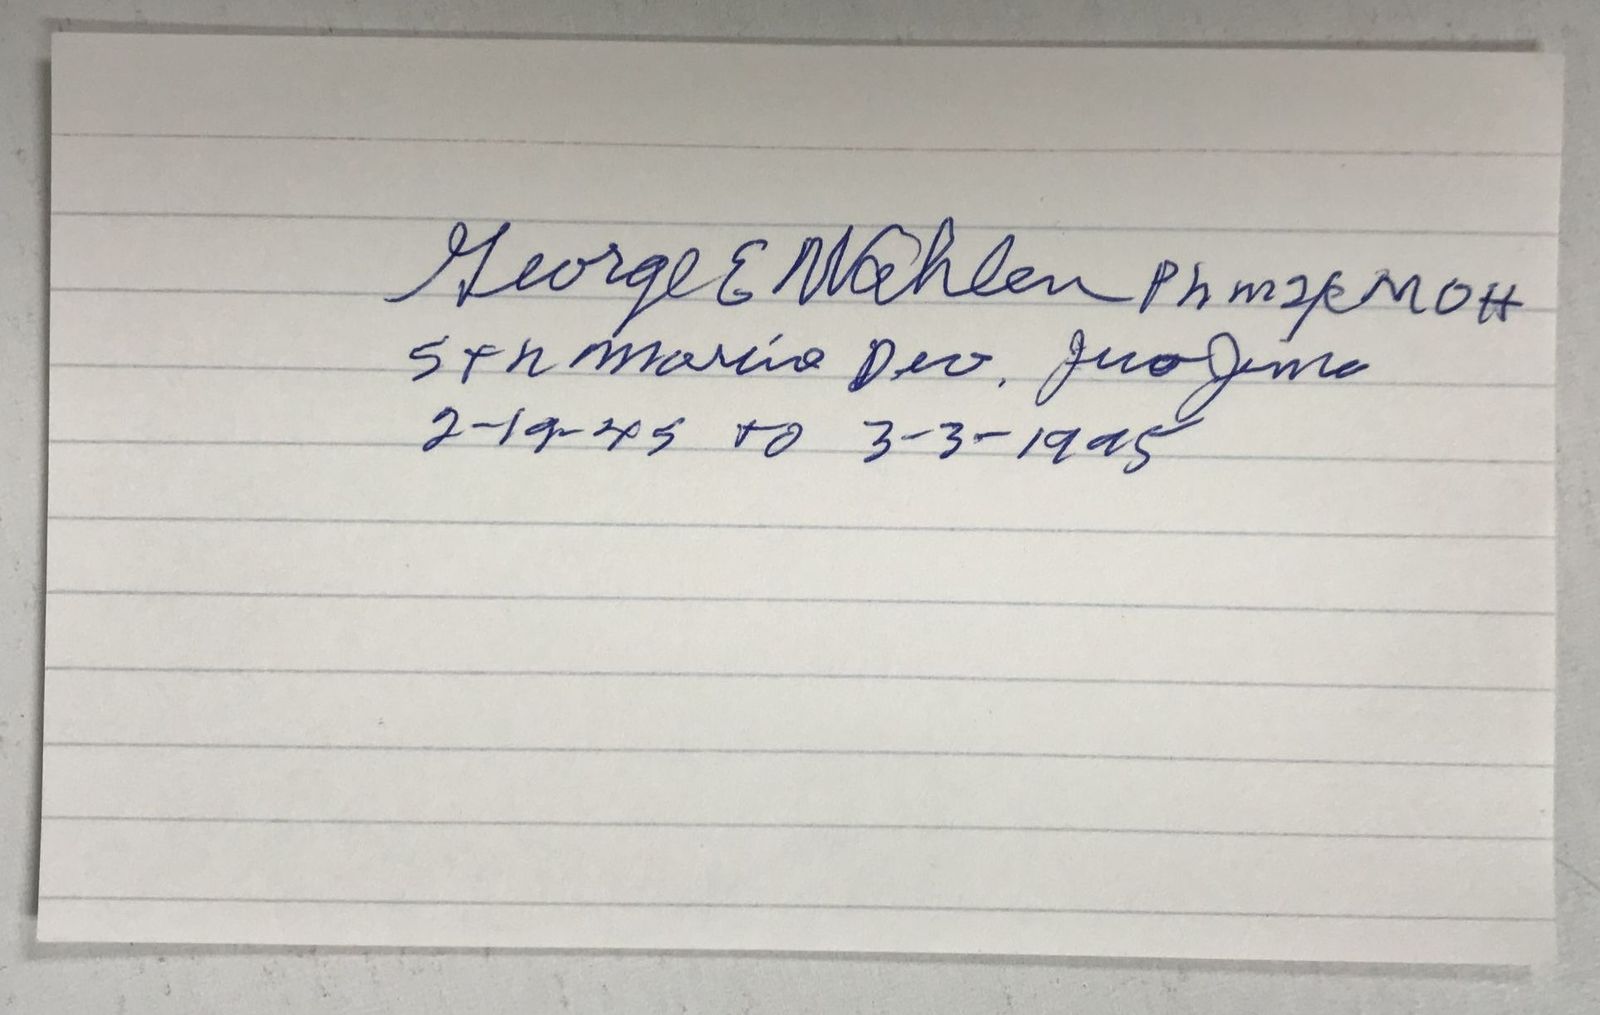 George E Wahlen Phm2/c MOH
5th Marine Div. Iwo Jima
2-19-45 to 3-3-1945